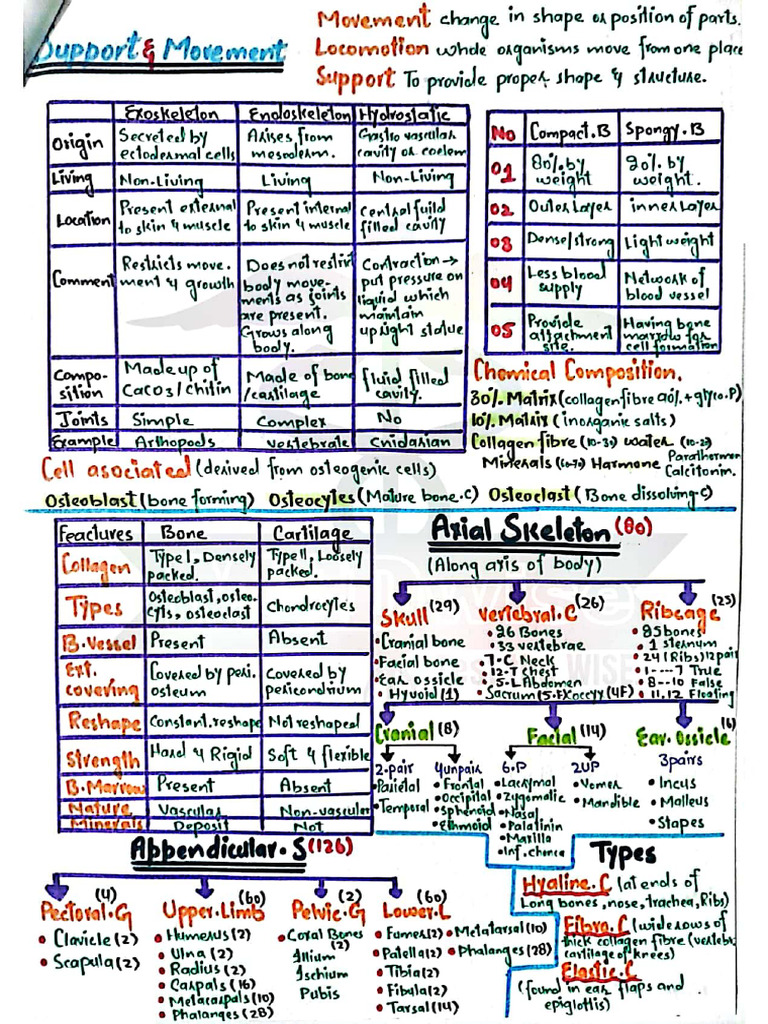 Support & Movement
Movement change in shape or position of parts.
Locomotion whole organisms move from one place
Support To provide proper shape & structure.
Exoskeleton Endoskeleton Hydrostatic
Origin Secreted by ectodermal cells Arises from mesoderm. Gastro vascular cavity or coelem
Living Non-Living Living Non-Living
Location Present external to skin & muscle Present internal to skin & muscle Central fuild filled cavity
Comment Restricts move. ment & growth Does not restrict body move- ments as joints are present. Grows along body. Contraction → put pressure on liquid which maintain upright statue
Compo- sition Made up of CaCO3/Chitin Made of bone /cartilage fluid filled cavity.
Joints Simple Complex No
Example Arthopods vertebrate Cnidarian
No Compact.B Spongy.B
01 80% by weight 20% by weight.
02 Outer Layer inner Layer
03 Dense/strong Light weight
04 Less blood supply Network of blood vessel
05 Provide attachment site. Having bone marrow for cell formation
Chemical Composition.
30% Matrix (collagen fibre 90% + glyco.P)
10% Matrix (inorganic salts)
Collagen fibre (10-30) water (10-20)
Minerals (60-70) Harmone Parathormon Calcitonim.
Cell asociated (derived from osteogenic cells)
Osteoblast (bone forming) Osteocytes (Mature bone.C) Osteoclast (Bone dissolving-C)
Feactures Bone Cartilage
Collagen Type I, Densely packed. Type II, Loosely packed.
Types Osteoblast, osteo. Cyts, osteoclast Chondrocytes
B.Vessel Present Absent
Ext. covering Covered by peri. osteum Covered by pericondrium
Reshape Constant.reshape Not reshaped
Strength Hard & Rigid Soft & flexible
B.Marrow Present Absent
Nature Vascular Non-vascular
Minerals Deposit Not
Axial Skeleton (80)
(Along axis of body)
Skull (29)
• Cranial bone
• Facial bone
• Ear ossicle
• Hyvoid (1)
Vertebral.C (26)
• 26 Bones
• 33 vertebrae
• 7-C Neck
• 12-T Chest
• 5-L Abdomen
Sacrum (5.F) Coccyx (4F)
Ribcage (25)
• 25 bones
• 1 sternum
• 24 (Ribs) 12 pair
• 1----7 True
• 8--10 False
• 11,12 Floating
Cranial (8)
2.pair
• Parietal
• Temporal
4unpair
• Frontal
• Occipital
• Sphenoid
• Ethmoid
Facial (14)
6.P
• Lacrymal
• Zygomatic
• Nasal
• Palatinin
• Maxilla
• Inf. chonca
2UP
• Vomer
• Mandible
Ear.Ossicle (6)
3pairs
• Incus
• Malleus
• Stapes
Appendicular.S (126)
Pectoral.G (4)
• Clavicle (2)
• Scapula (2)
Upper.Limb (60)
• Humerus (2)
• Ulna (2)
• Radius (2)
• Carpals (16)
• Metacarpals (10)
• Phalanges (28)
Pelvic.G (2)
• Coral Bones (2)
Illium
Ischium
Pubis
Lower.L (60)
• Fumer (2)
• Patella (2)
• Tibia (2)
• Fibula (2)
• Tarsal (14)
• Metatarsal (10)
• Phalanges (28)
Types
Hyaline.C (at ends of
Long bones, nose, trachea, Ribs)
Fibro.C (wide rows of
thick collagen fibre (vertebr
cartilage of knees)
Elastic.C
(found in ear flaps and
epiglottis)